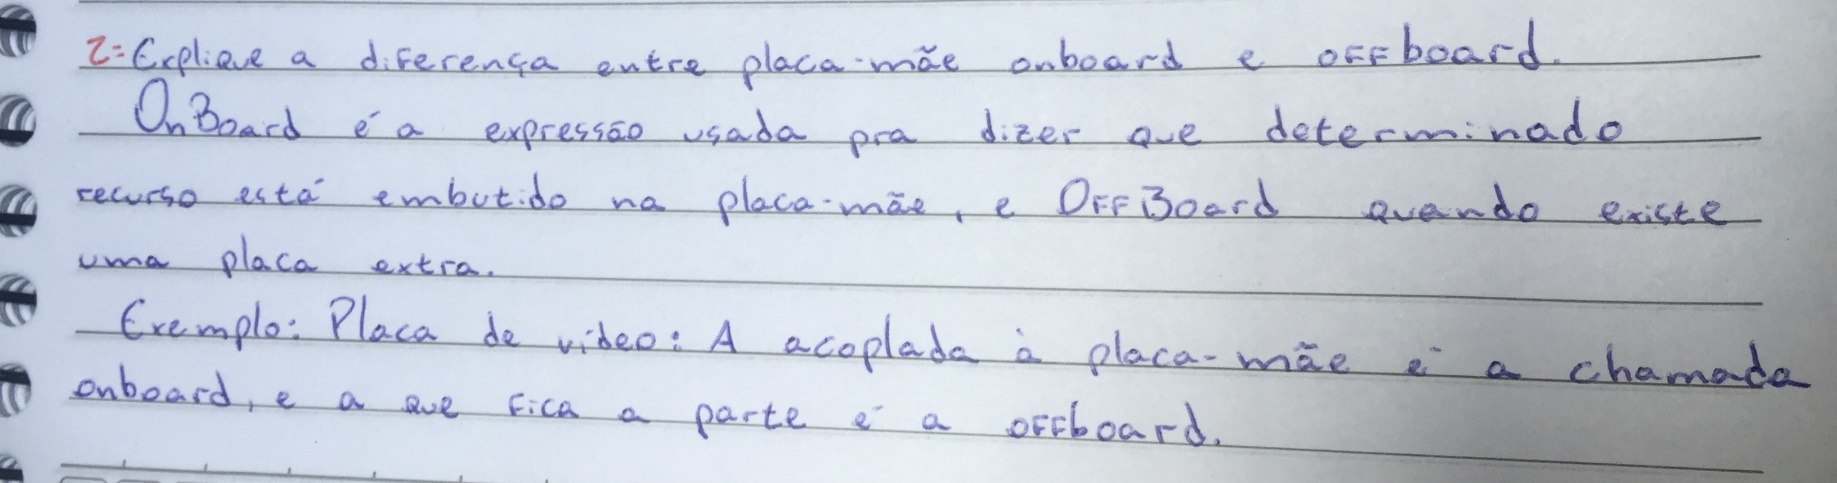 2=Explique a diferença entre placa-mãe onboard e offboard.
OnBoard é a expressão usada pra dizer que determinado
recurso está embutido na placa-mãe, e OffBoard quando existe
uma placa extra.
Exemplo: Placa de vídeo: A acoplada à placa-mãe é a chamada
onboard, e a que fica a parte é a offboard.